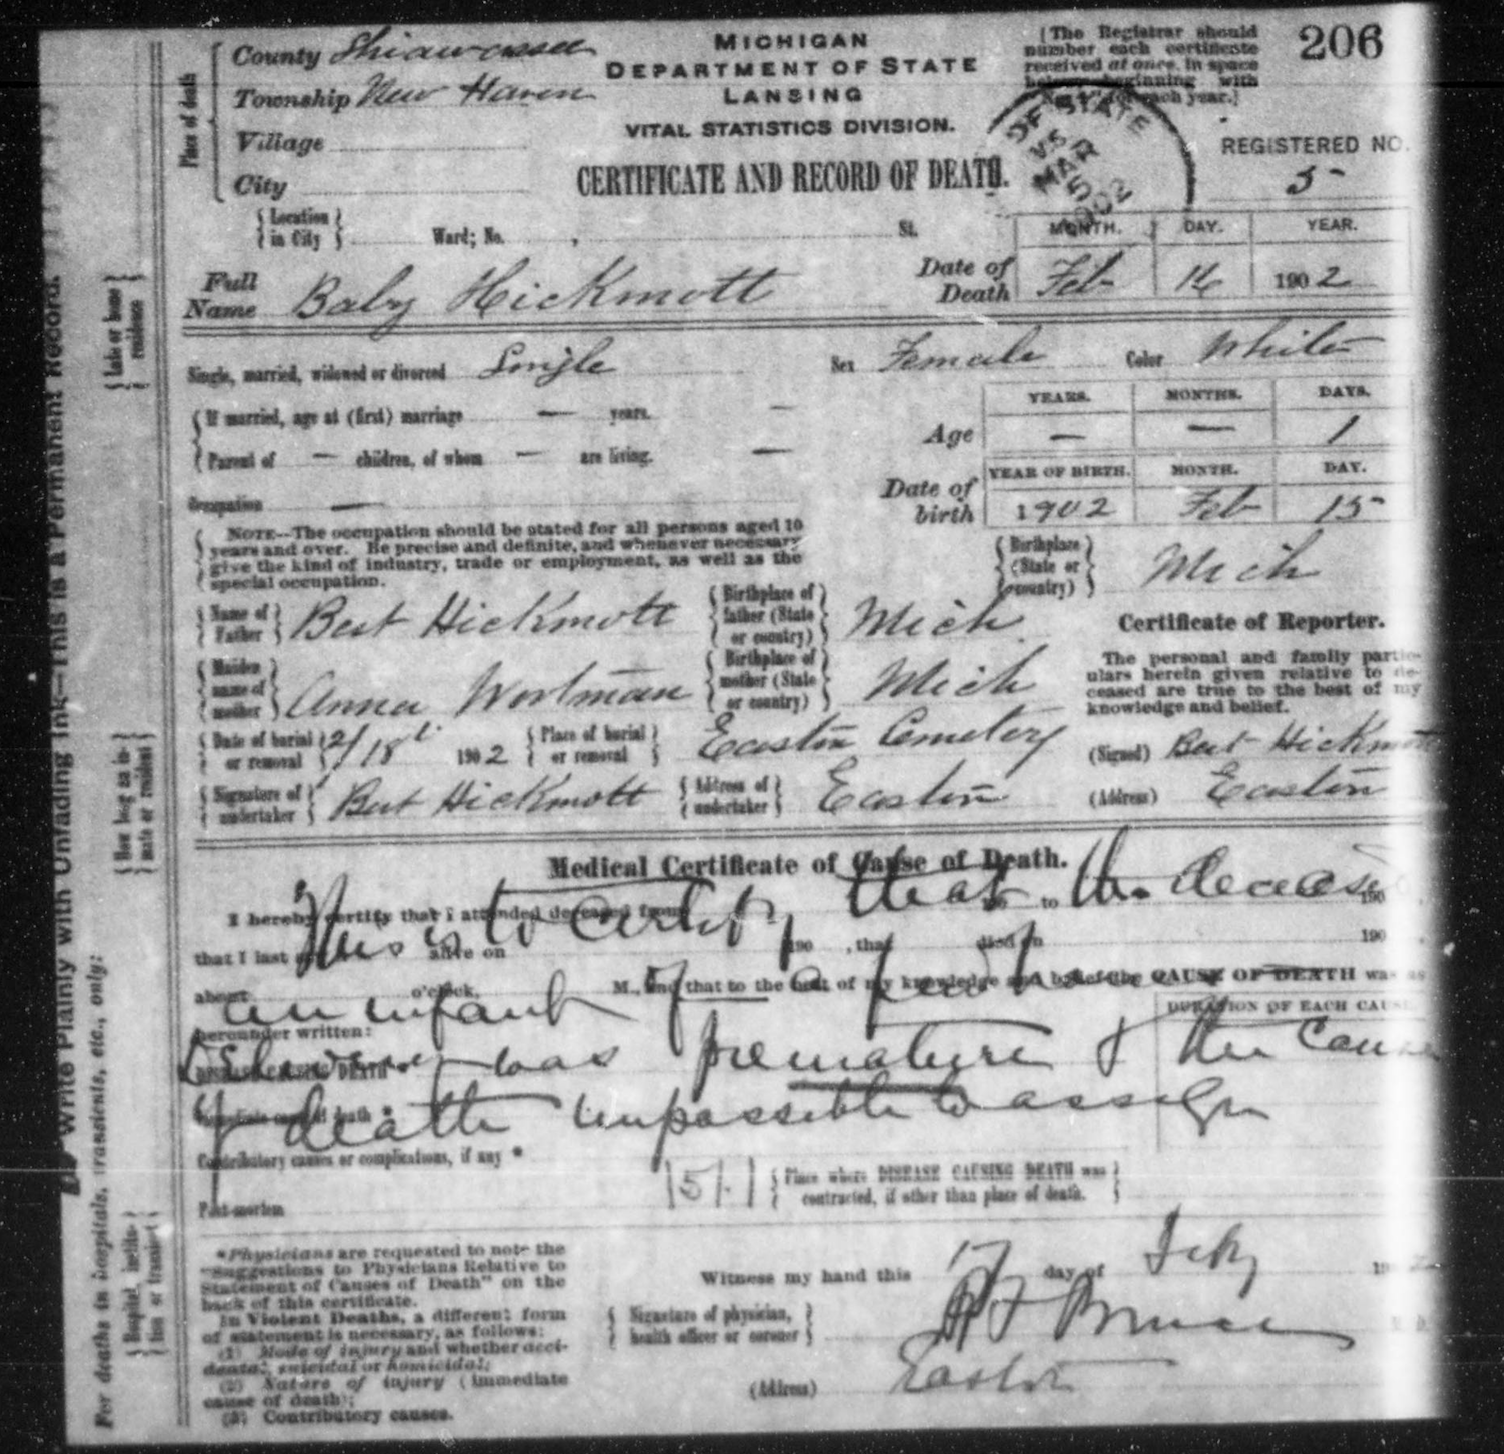 206
County Shiawassee
Township New Haven
Village
City
Place of death
MICHIGAN
DEPARTMENT OF STATE
LANSING
VITAL STATISTICS DIVISION.
CERTIFICATE AND RECORD OF DEATH.
(The Registrar should
number each certificate
received at once, in space
beginning with
each year.)
OF STATE
VS
MAR
5
1902
REGISTERED NO.
5
Location in City Ward; No. , St.
Date of Death
MONTH. DAY. YEAR.
Feb 16 1902
Full Name Baby Hickmott
Single, married, widowed or divorced Single Sex Female Color White
If married, age at (first) marriage — years. —
Parent of — children, of whom — are living. —
Age
YEARS. MONTHS. DAYS.
— — 1
Occupation —
Date of birth
YEAR OF BIRTH. MONTH. DAY.
1902 Feb 15
NOTE—The occupation should be stated for all persons aged 10
years and over. Be precise and definite, and whenever necessary
give the kind of industry, trade or employment, as well as the
special occupation.
Birthplace (State or country) Mich
Name of Father Bert Hickmott Birthplace of father (State or country) Mich.
Maiden name of mother Anna Wortman Birthplace of mother (State or country) Mich
Date of burial or removal 2/18 1902 Place of burial or removal Easton Cemetery
Signature of undertaker Bert Hickmott Address of undertaker Easton
Certificate of Reporter.
The personal and family particu-
lars herein given relative to de-
ceased are true to the best of my
knowledge and belief.
(Signed) Bert Hickmott
(Address) Easton
Medical Certificate of Cause of Death.
I hereby certify that I attended deceased from to 190
This is to certify that the deceased
that I last alive on 190 , that died on 190
about o'clock, M., and that to the best of my knowledge and belief the CAUSE OF DEATH was as
an infant of a few hours
hereunder written:
DURATION OF EACH CAUSE
DISEASE CAUSING DEATH
Delivery was premature & the cause
Immediate cause of death *
of death impossible to assign
Contributory causes or complications, if any *
151.
Place where DISEASE CAUSING DEATH was
contracted, if other than place of death.
Post-mortem
*Physicians are requested to note the
"Suggestions to Physicians Relative to
Statement of Causes of Death" on the
back of this certificate.
In Violent Deaths, a different form
of statement is necessary, as follows:
(1) Mode of injury and whether acci-
dental, suicidal or homicidal;
(2) Nature of injury (immediate
cause of death);
(3) Contributory causes.
Witness my hand this 17 day of Feby 190
Signature of physician, health officer or coroner
(Address) Easton
Write Plainly with Unfading Ink—This is a Permanent Record.
Late or home residence
How long an inmate or resident
Hospital, institution or transient
For deaths in hospitals, transients, etc., only: